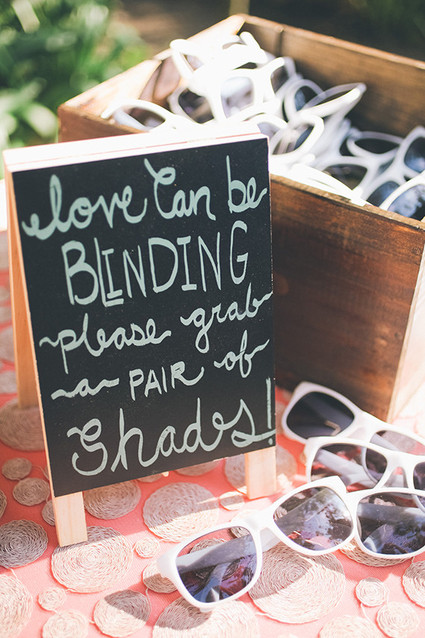 Love Can be
BLINDING
please grab
a PAIR of
Shades!